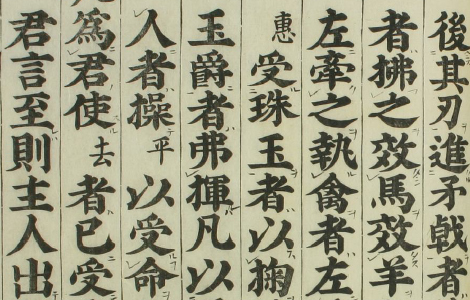 後其刃進矛戟者
者拂之效馬效羊
左牽之執禽者左
惠受珠玉者以掬
玉爵者弗揮凡以
人者操平以受命
爲君使去者已受
君言至則主人出